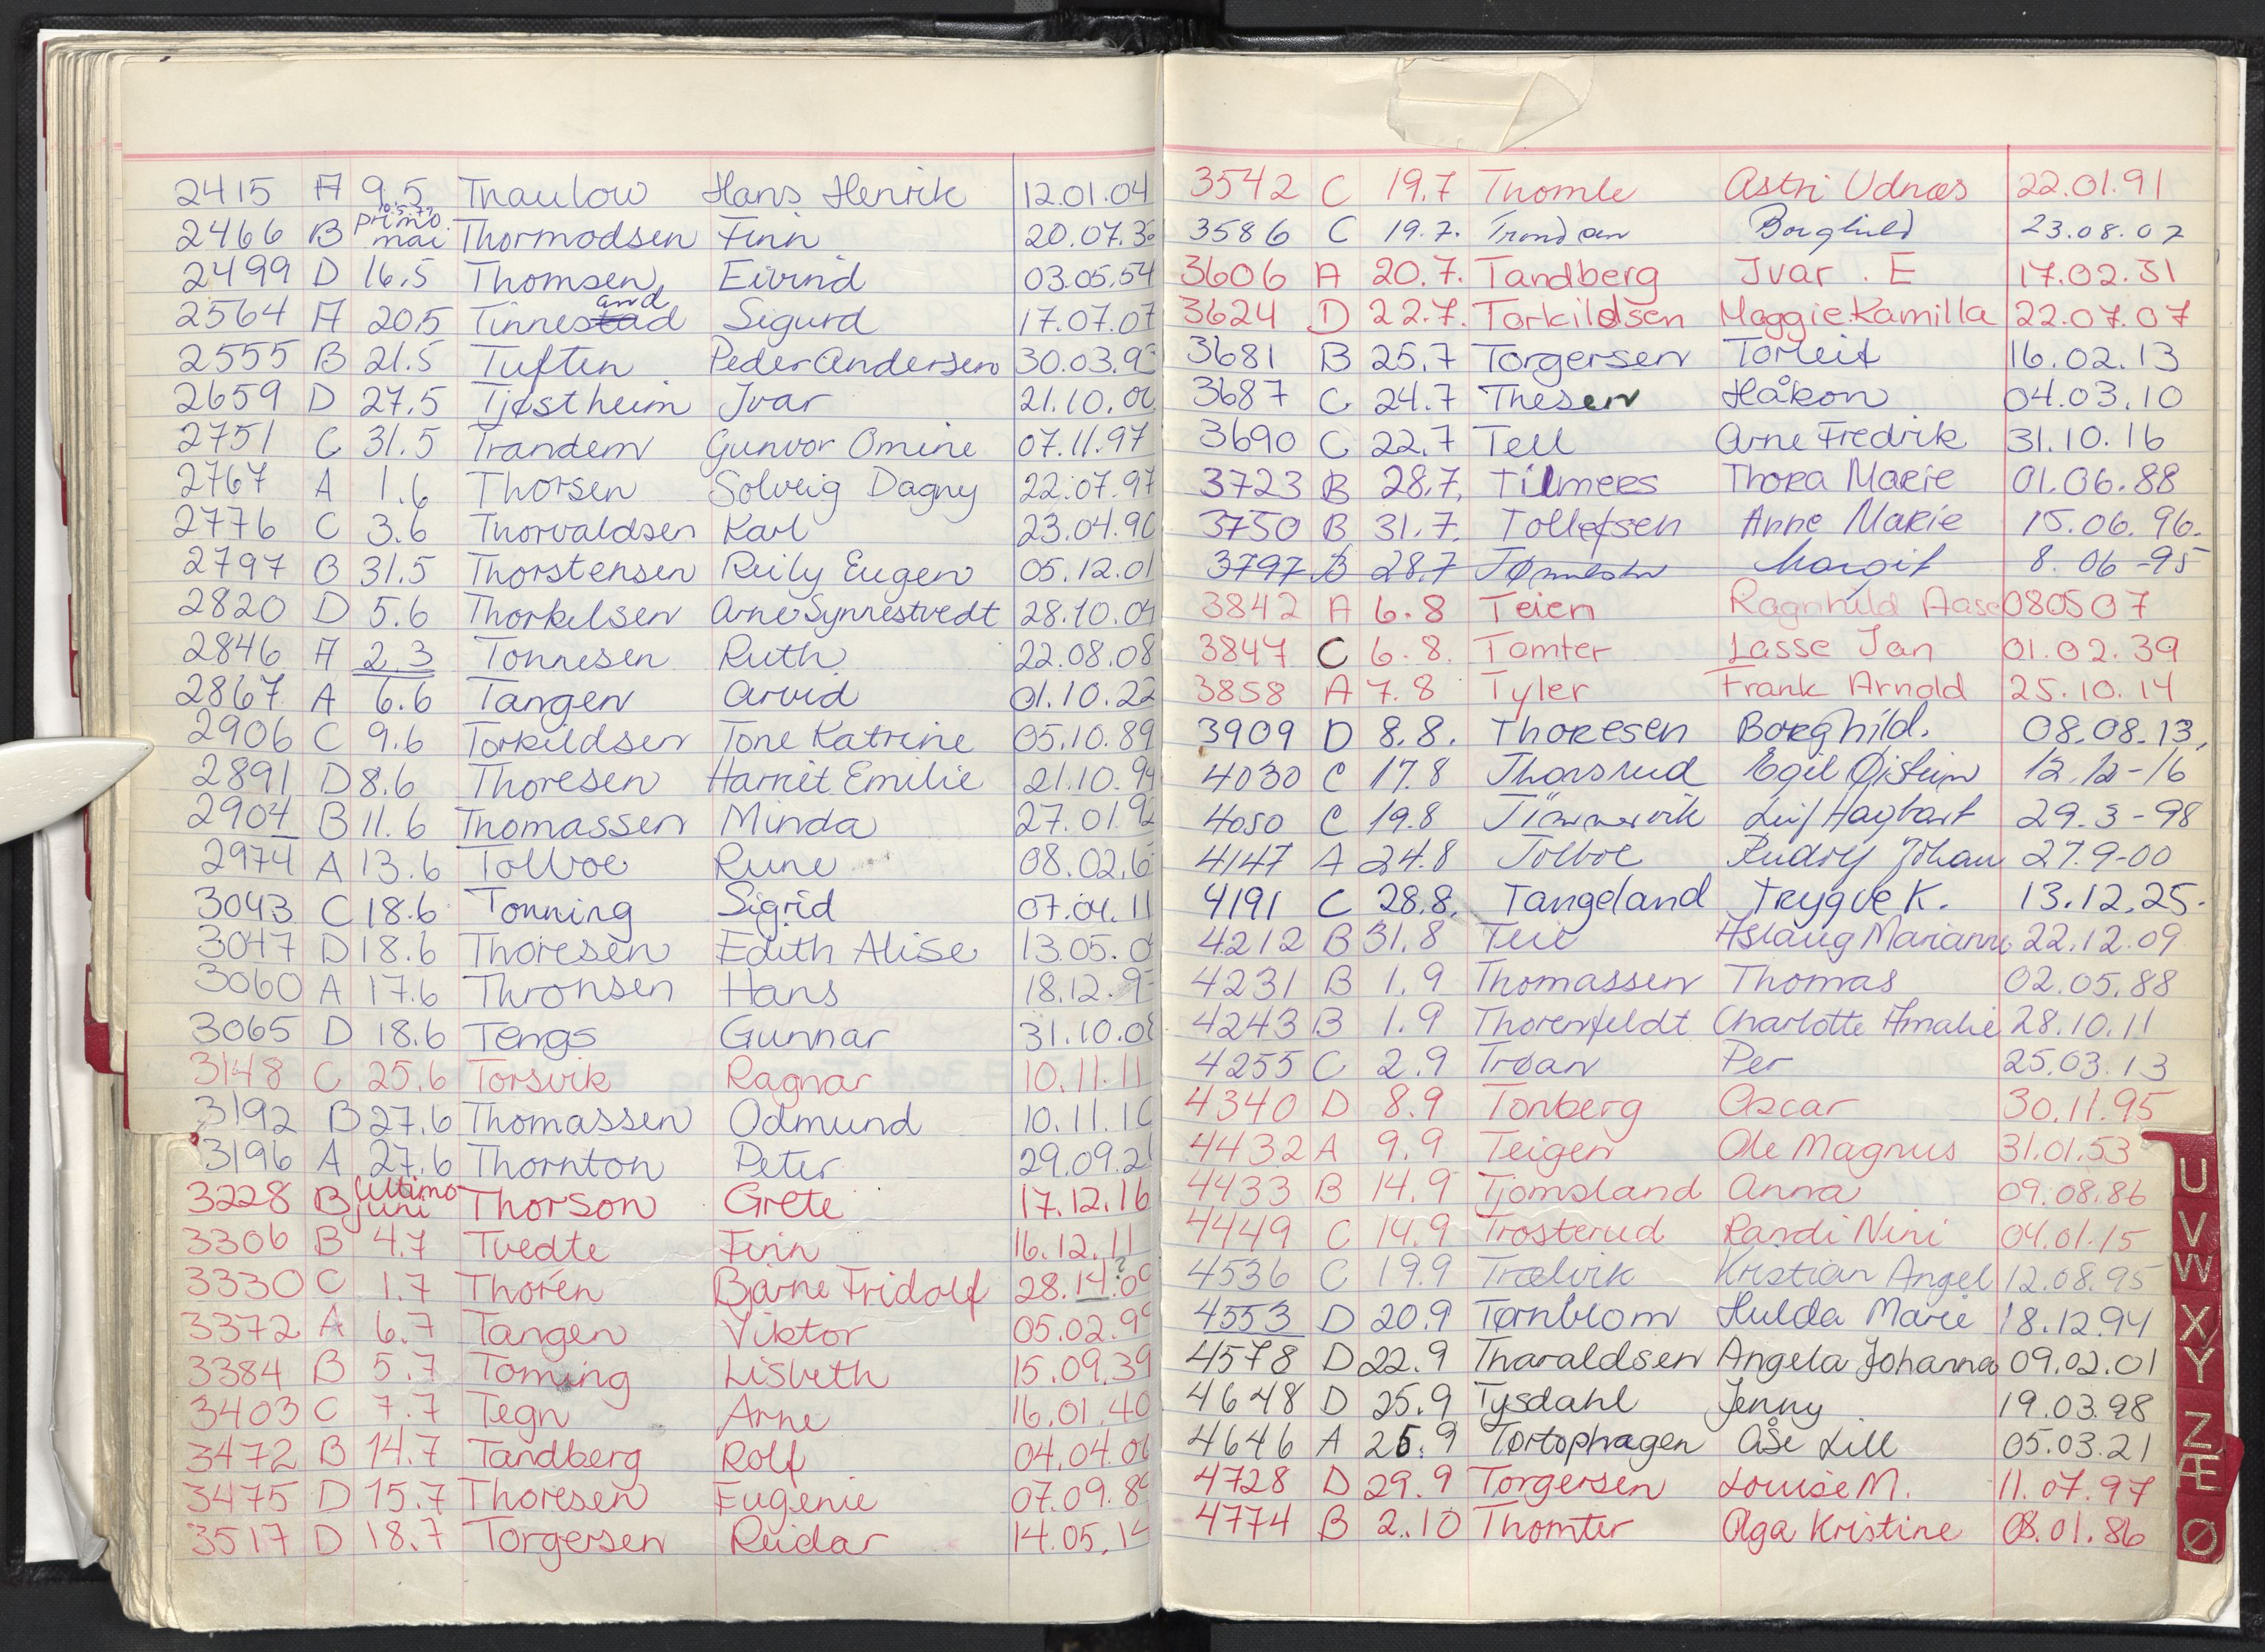 2415 A 9.5 Thaulow Hans Henrik 12.01.04
10.5.79
2466 B primo mai Thormodsen Finn 20.07.3
2499 D 16.5 Thomsen Eivind 03.05.54
and
2564 A 20.5 Tinnestad Sigurd 17.07.07
2555 B 21.5 Tuften Peder Andersen 30.03.9
2659 D 27.5 Tjøstheim Ivar 21.10.0
2751 C 31.5 Trandem Gunvor Omine 07.11.97
2767 A 1.6 Thorsen Solveig Dagny 22.07.97
2776 C 3.6 Thorvaldsen Karl 23.04.90
2797 B 31.5 Thorstensen Reily Eugen 05.12.01
2820 D 5.6 Thorkelsen Arne Synnestvedt 28.10.04
2846 A 2.3 Tonnesen Ruth 22.08.08
2867 A 6.6 Tangen Arvid 01.10.22
2906 C 9.6 Torkildsen Tone Katrine 05.10.89
2891 D 8.6 Thoresen Harriet Emilie 21.10.94
2904 B 11.6 Thomassen Minda 27.01.92
2974 A 13.6 Tolboe Rune 08.02.6
3043 C 18.6 Tonning Sigrid 07.04.11
3047 D 18.6 Thoresen Edith Alise 13.05.0
3060 A 17.6 Thronsen Hans 18.12.9
3065 D 18.6 Tengs Gunnar 31.10.08
3148 C 25.6 Torsvik Ragnar 10.11.11
3192 B 27.6 Thomassen Odmund 10.11.10
3196 A 27.6 Thornton Peter 29.09.2
3228 B Ultimo juni Thorson Grete 17.12.16
3306 B 4.7 Tvedte Finn 16.12.11
3330 C 1.7 Thorén Bjarne Fridolf 28.14.?09
3372 A 6.7 Tangen Viktor 05.02.99
3384 B 5.7 Toming Lisbeth 15.09.39
3403 C 7.7 Tegn Arne 16.01.40
3472 B 14.7 Tandberg Rolf 04.04.06
3475 D 15.7 Thoresen Eugenie 07.09.8
3517 D 18.7 Torgersen Reidar 14.05.14
3542 C 19.7 Thomle Astri Udnæs 22.01.91
3586 C 19.7. Trondsen Borghild 23.08.07
3606 A 20.7. Tandberg Ivar. E 17.02.31
3624 D 22.7. Torkildsen Maggie Kamilla 22.07.07
3681 B 25.7 Torgersen Torleif 16.02.13
3687 C 24.7 Thesen Håkon 04.03.10
3690 C 22.7 Tell Arne Fredrik 31.10.16
3723 B 28.7. Tilmers Thora Marie 01.06.88
3750 B 31.7. Tollefsen Anne Marie 15.06.96.
3797 B 28.7 Margit 8.06-95
3842 A 6.8 Teien Ragnhild Aase 080507
3847 C 6.8. Tomter Lasse Jan 01.02.39
3858 A 7.8 Tyler Frank Arnold 25.10.14
3909 D 8.8. Thoresen Borghild. 08.08.13,
4030 C 17.8 Thorsrud Egil Øistein 12.12-16
4050 C 19.8 Tiønnervik Leif Hagbart 29.3-98
4147 A 24.8 Tolboe Rudolf Johan 27.9-00
4191 C 28.8. Tangeland Trygve K. 13.12.25.
4212 B 31.8 Teie Aslaug Marianne 22.12.09
4231 B 1.9 Thomassen Thomas 02.05.88
4243 B 1.9 Thorenfeldt Charlotte Amalie 28.10.11
4255 C 2.9 Trøan Per 25.03.13
4340 D 8.9 Tonberg Oscar 30.11.95
4432 A 9.9 Teigen Ole Magnus 31.01.53
4433 B 14.9 Tjomsland Anna 09.08.86
4449 C 14.9 Trosterud Randi Nini 04.01.15
4536 C 19.9 Trælvik Kristian Angel 12.08.95
4553 D 20.9 Tørnblom Hulda Marie 18.12.94
4578 D 22.9 Tharaldsen Angela Johanna 09.02.01
4648 D 25.9 Tysdahl Jenny 19.03.98
4646 A 25.9 Tortophagen Åse Lill 05.03.21
4728 D 29.9 Torgersen Louise M. 11.07.97
4774 B 2.10 Thomter Aga Kristine 08.01.86
U
V
W
X
Y
Z
Æ
Ø